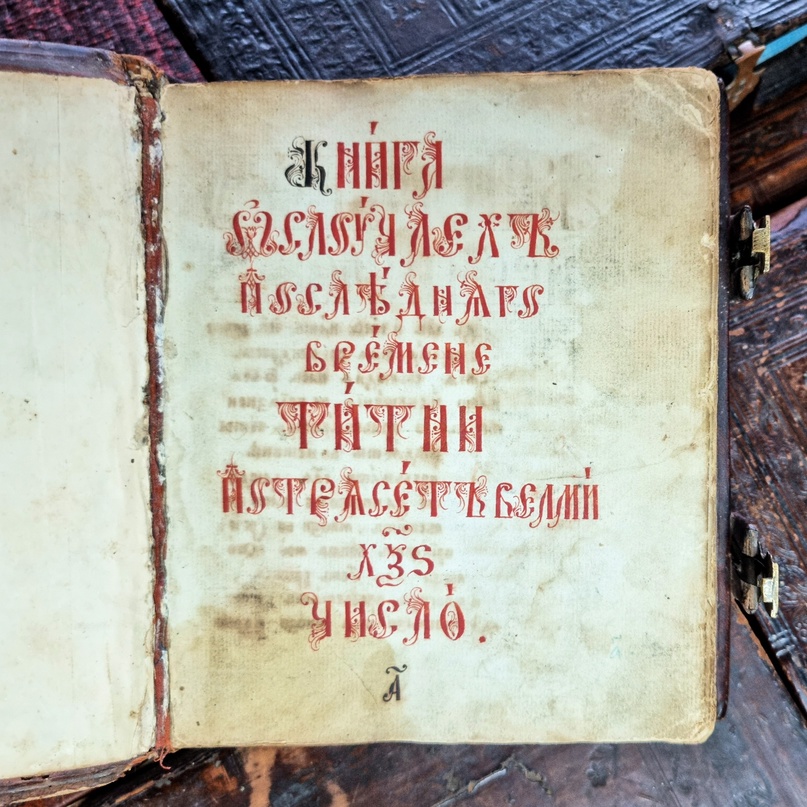 Кни́га
Ѽслоѵ́чаехъ
послѣ́днѧго
вре́мене
ти́тин
и҆потрѧсе́тъ велмѝ
хѯ҃ѕ
число̀.
а҃